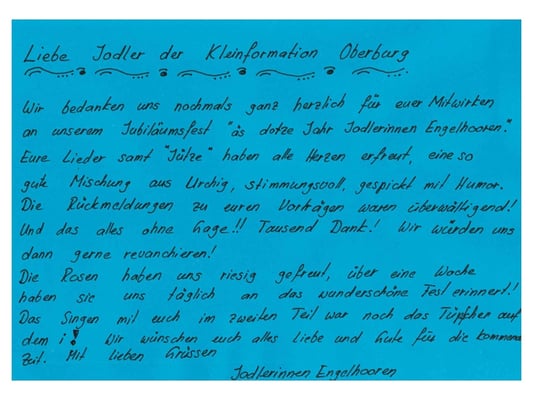 Liebe Jodler der Kleinformation Oberburg
Wir bedanken uns nochmals ganz herzlich für euer Mitwirken
an unserem Jubiläumsfest "äs dotze Jahr Jodlerinnen Engelhooren".
Eure Lieder samt "Jützе" haben alle Herzen erfreut, eine so
gute Mischung aus Urchig, stimmungsvoll, gespickt mit Humor.
Die Rückmeldungen zu euren Vorträgen waren überwältigend!
Und das alles ohne Gage!! Tausend Dank! Wir würden uns
dann gerne revanchieren!
Die Rosen haben uns riesig gefreut, über eine Woche
haben sie uns täglich an das wunderschöne Fest erinnert!
Das Singen mit euch im zweiten Teil war noch das Tüpfcher auf
dem i! Wir wünschen euch alles Liebe und Gute für die kommende
Zeit. Mit lieben Grüssen
Jodlerinnen Engelhooren